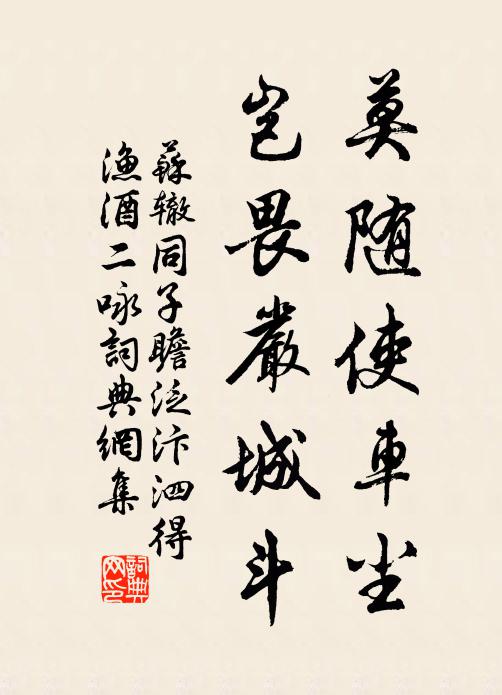 莫随使車尘
岂畏嚴城斗
蘇辙同子瞻泛汴泗得
漁酒二咏詞典網集
詞典网印